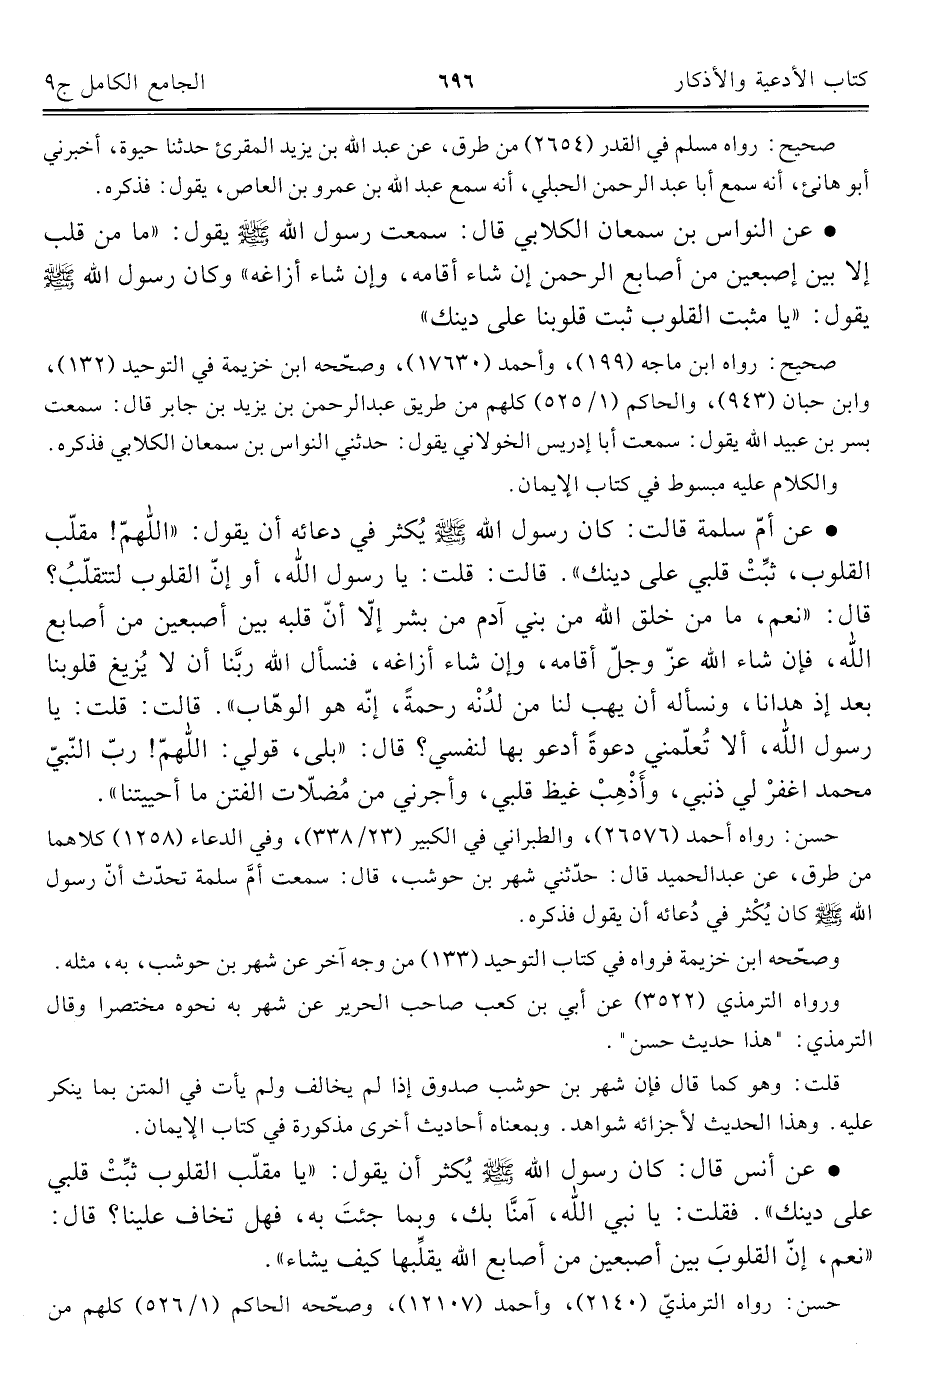 كتاب الأدعية والأذكار ٦٩٦ الجامع الكامل ج٩
صحيح: رواه مسلم في القدر (٢٦٥٤) من طرق، عن عبد الله بن يزيد المقرئ حدثنا حيوة، أخبرني
أبو هانئ، أنه سمع أبا عبد الرحمن الحبلي، أنه سمع عبد الله بن عمرو بن العاص، يقول: فذكره.
• عن النواس بن سمعان الكلابي قال: سمعت رسول الله ﷺ يقول: «ما من قلب
إلا بين إصبعين من أصابع الرحمن إن شاء أقامه، وإن شاء أزاغه» وكان رسول الله ﷺ
يقول: «يا مثبت القلوب ثبت قلوبنا على دينك»
صحيح: رواه ابن ماجه (١٩٩)، وأحمد (١٧٦٣٠)، وصحّحه ابن خزيمة في التوحيد (١٣٢)،
وابن حبان (٩٤٣)، والحاكم (١/ ٥٢٥) كلهم من طريق عبدالرحمن بن يزيد بن جابر قال: سمعت
بسر بن عبيد الله يقول: سمعت أبا إدريس الخولاني يقول: حدثني النواس بن سمعان الكلابي فذكره.
والكلام عليه مبسوط في كتاب الإيمان.
• عن أمّ سلمة قالت: كان رسول الله ﷺ يُكثر في دعائه أن يقول: «اللّٰهمّ! مقلّب
القلوب، ثبِّتْ قلبي على دينك». قالت: قلت: يا رسول الله، أو إنّ القلوب لتتقلّبُ؟
قال: «نعم، ما من خلق الله من بني آدم من بشر إلّا أنّ قلبه بين أصبعين من أصابع
اللّٰه، فإن شاء الله عزّ وجلّ أقامه، وإن شاء أزاغه، فنسأل الله ربَّنا أن لا يُزيغ قلوبنا
بعد إذ هدانا، ونسأله أن يهب لنا من لدُنْه رحمةً، إنّه هو الوهّاب». قالت: قلت: يا
رسول اللّٰه، ألا تُعلّمني دعوةً أدعو بها لنفسي؟ قال: «بلى، قولي: اللّٰهمّ! ربّ النّبيّ
محمد اغفرْ لي ذنبي، وأَذْهِبْ غيظ قلبي، وأجرني من مُضلّات الفتن ما أحييتنا».
حسن: رواه أحمد (٢٦٥٧٦)، والطبراني في الكبير (٢٣/ ٣٣٨)، وفي الدعاء (١٢٥٨) كلاهما
من طرق، عن عبدالحميد قال: حدّثني شهر بن حوشب، قال: سمعت أمَّ سلمة تحدّث أنّ رسول
الله ﷺ كان يُكْثر في دُعائه أن يقول فذكره.
وصحّحه ابن خزيمة فرواه في كتاب التوحيد (١٣٣) من وجه آخر عن شهر بن حوشب، به، مثله.
ورواه الترمذي (٣٥٢٢) عن أبي بن كعب صاحب الحرير عن شهر به نحوه مختصرا وقال
الترمذي: "هذا حديث حسن".
قلت: وهو كما قال فإن شهر بن حوشب صدوق إذا لم يخالف ولم يأت في المتن بما ينكر
عليه. وهذا الحديث لأجزائه شواهد. وبمعناه أحاديث أخرى مذكورة في كتاب الإيمان.
• عن أنس قال: كان رسول الله ﷺ يُكثر أن يقول: «يا مقلّب القلوب ثبِّتْ قلبي
على دينك». فقلت: يا نبي اللّٰه، آمنَّا بك، وبما جئتَ به، فهل تخاف علينا؟ قال:
«نعم، إنّ القلوبَ بين أصبعين من أصابع الله يقلِّبها كيف يشاء».
حسن: رواه الترمذيّ (٢١٤٠)، وأحمد (١٢١٠٧)، وصحّحه الحاكم (١/ ٥٢٦) كلهم من